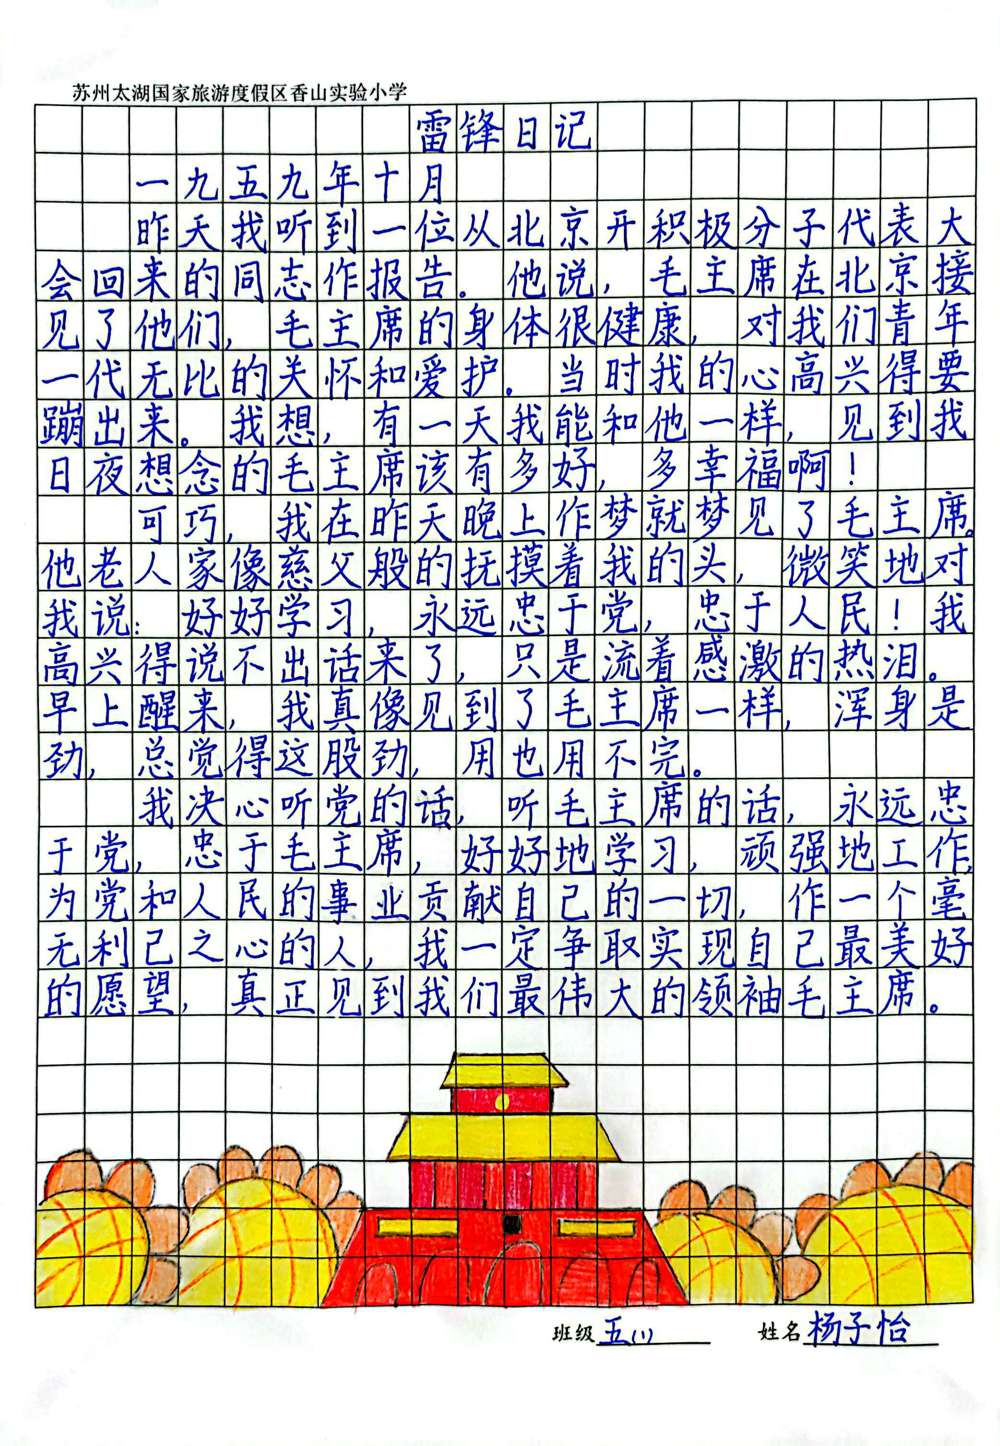 苏州太湖国家旅游度假区香山实验小学
雷锋日记
一九五九年十月
昨天我听到一位从北京开积极分子代表大
会回来的同志作报告。他说，毛主席在北京接
见了他们，毛主席的身体很健康，对我们青年
一代无比的关怀和爱护。当时我的心高兴得要
蹦出来。我想，有一天我能和他一样，见到我
日夜想念的毛主席该有多好，多幸福啊！
可巧，我在昨天晚上作梦就梦见了毛主席。
他老人家像慈父般的抚摸着我的头，微笑地对
我说：好好学习，永远忠于党，忠于人民！我
高兴得说不出话来了，只是流着感激的热泪。
早上醒来，我真像见到了毛主席一样，浑身是
劲，总觉得这股劲，用也用不完。
我决心听党的话，听毛主席的话，永远忠
于党，忠于毛主席，好好地学习，顽强地工作，
为党和人民的事业贡献自己的一切，作一个毫
无利己之心的人，我一定争取实现自己最美好
的愿望，真正见到我们最伟大的领袖毛主席。
班级 五（1） 姓名 杨子怡